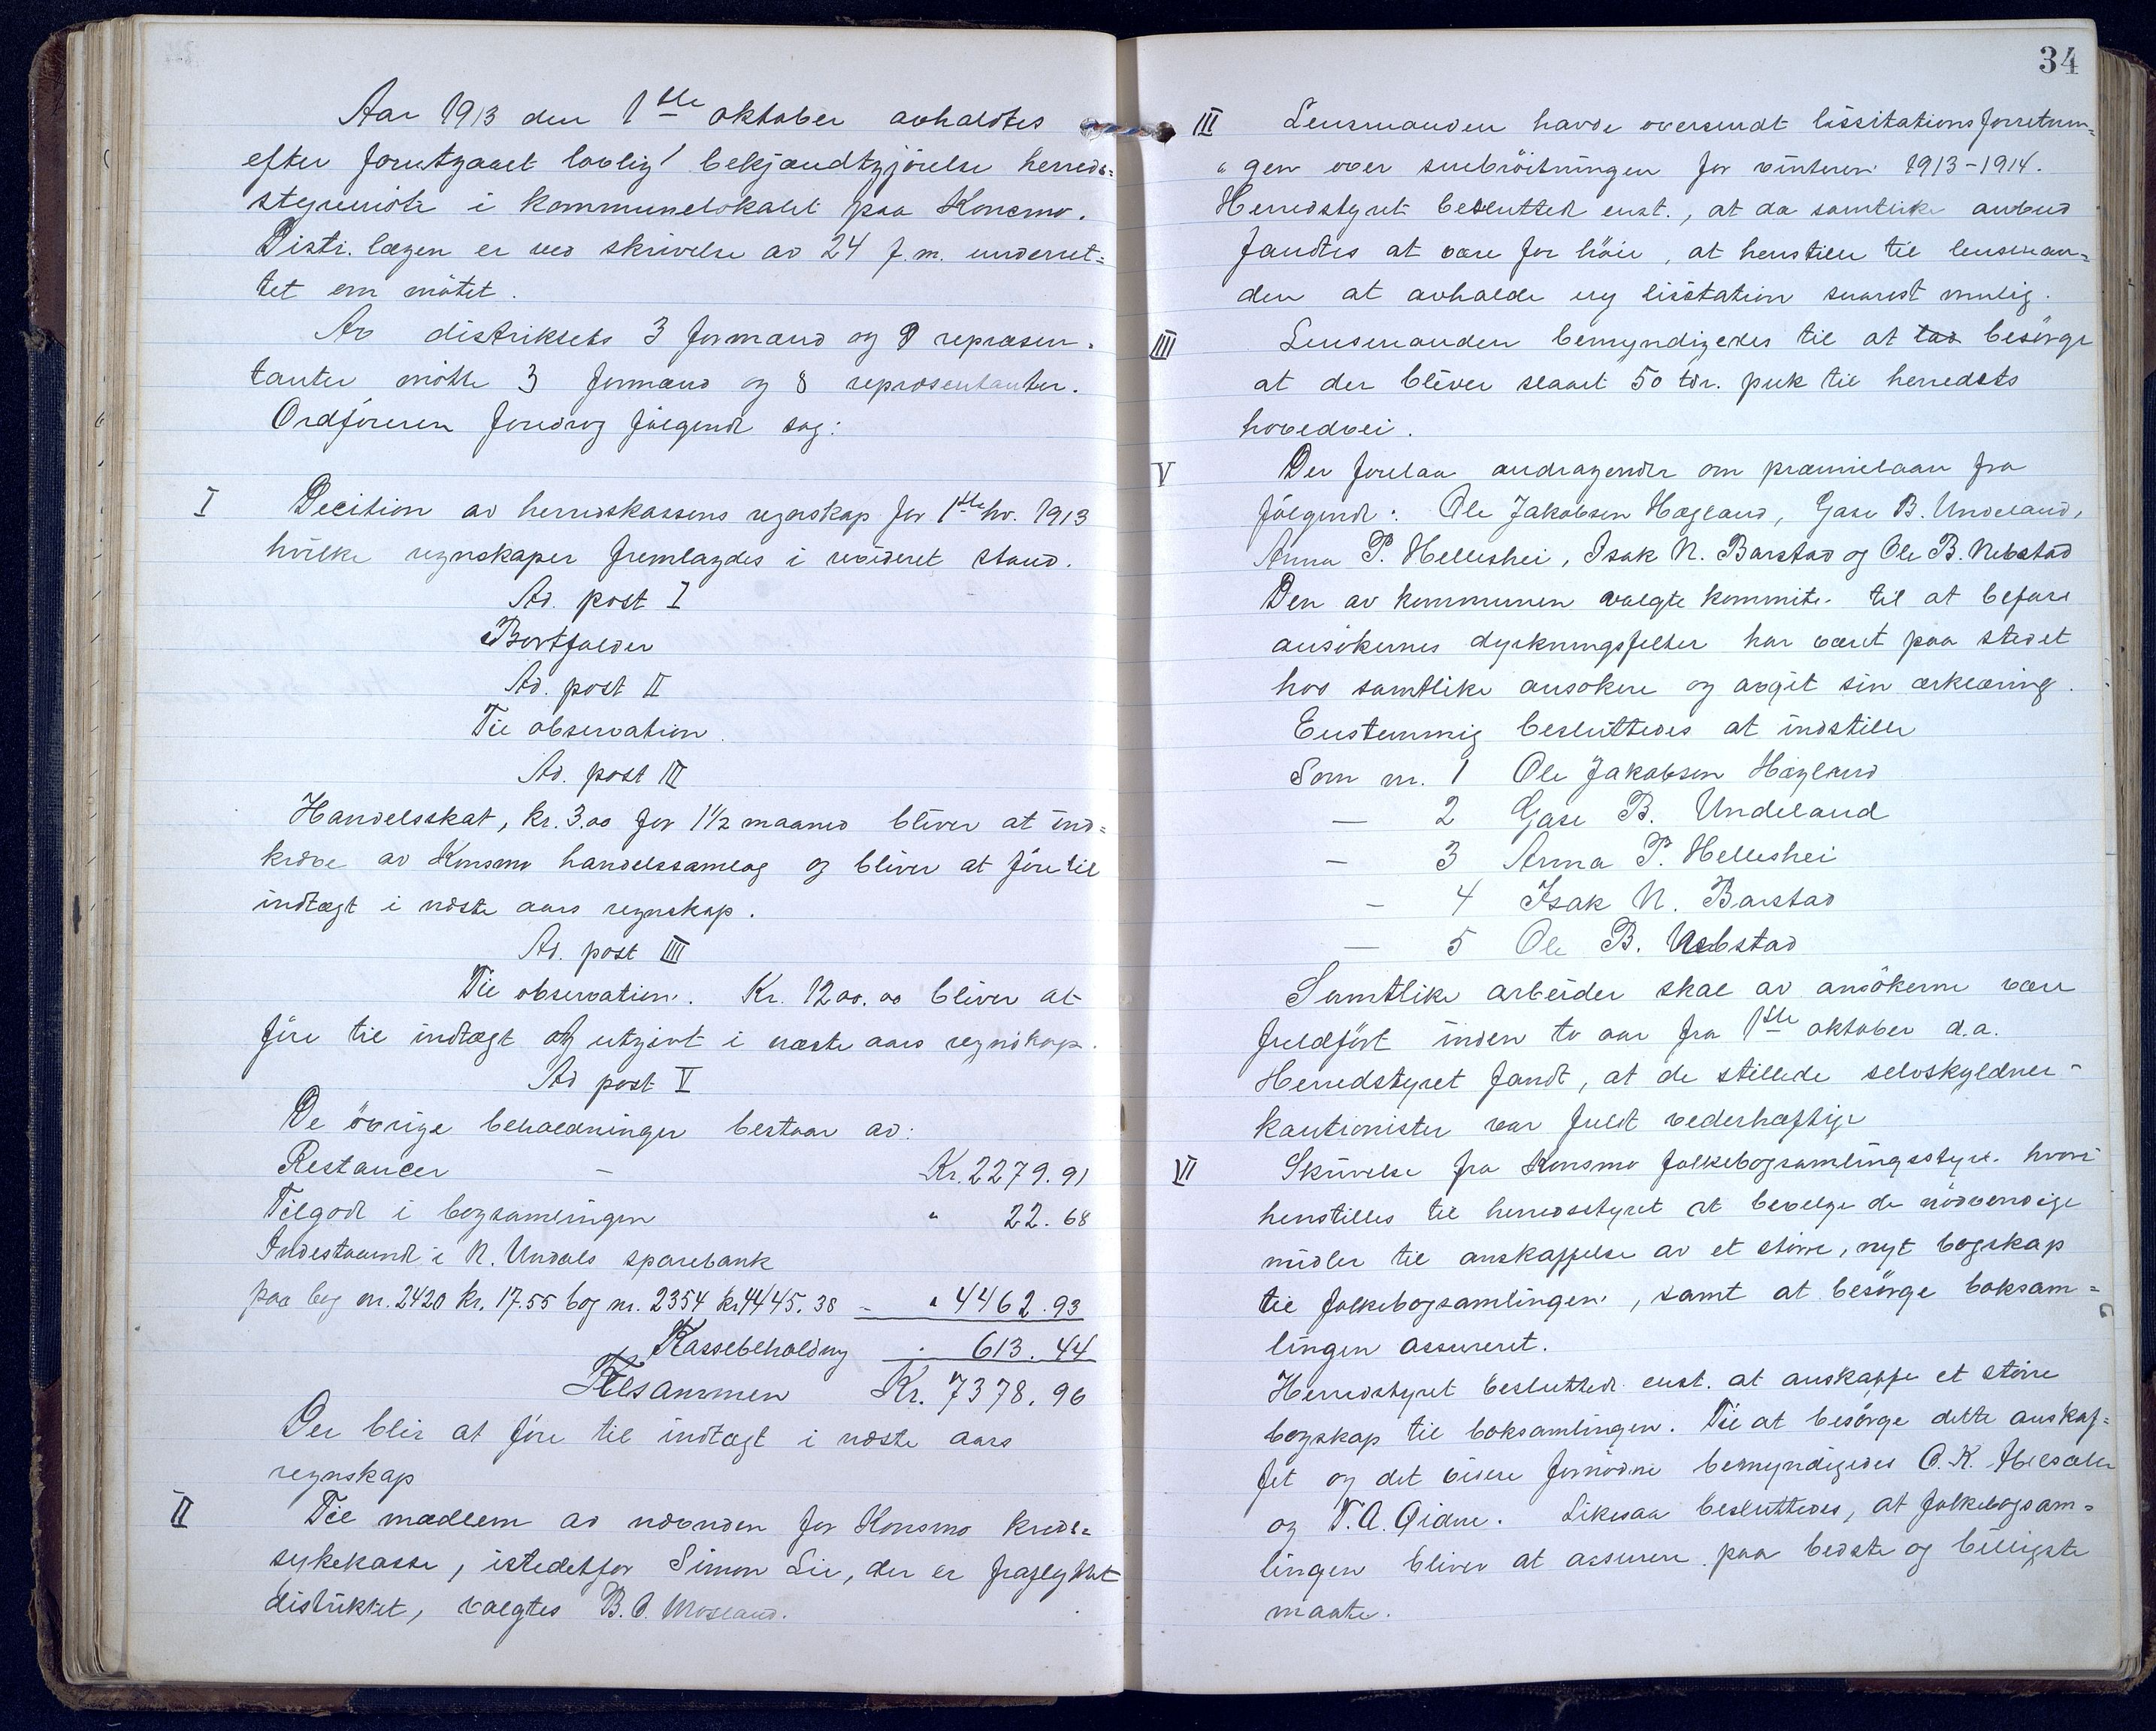 Aar 1913 den 1ste oktober avholdtes
efter forutgaaet lovlig bekjendtgjörelse herreds=
styremöte i kommunelokalet paa Konsmo.
Distr. lægen er ved skrivelse av 24 f.m. underret=
tet om mötet.
Av distriktets 3 formænd og 9 repræsen=
tanter mötte 3 formænd og 8 repræsentanter.
Ordföreren foredrog fölgende sag:
I Decition av herredskassens regnskap for 1ste hv. 1913
hvilke regnskaper fremlagdes i revideret stand.
Ad. post I
Bortfalder
Ad. post II
Til observation.
Ad. post III
Handelsskat, kr. 3.00 for 1½ maaned bliver at ind=
kræve av Konsmo handelssamlag og bliver at före til
indtægt i næste aars regnskap.
Ad. post IIII
Til observation. Kr. 1200.00 bliver at
före til indtægt og utgivt i næste aars regnskap.
Ad post V
De övrige beholdninger bestaar av:
Restancer – Kr. 2279.91
Tilgode i bogsamlingen " 22.68
Indestaaende i N. Undals sparebank
paa bog nr. 2420 kr. 17.55 bog nr. 2354 kr 4445.38 – " 4462.93
Kassebeholdning " 613.44
Tilsammen Kr. 7378.96
Der blir at före til indtægt i næste aars
regnskap
II Til medlem av nævnden for Konsmo kreds=
sykekasse, istedetfor Simon Lie, der er fraflyttet
distriktet, valgtes B. O. Mosland.
34
III Lensmanden havde oversendt lissitationsforretnin=
"gen over snebröitningen for vinteren 1913-1914.
Herredstyret besluttede enst., at da samtlike anbud
fandtes at være for höie, at henstille til lensman=
den at avholde ny lisitation snarest mulig.
IIII Lensmanden bemyndigedes til at lad besörge
at der bliver slaaet 50 tdr. puk til herredets
hovedvei.
V Der forelaa andragender om præmielaan fra
fölgende: Ole Jakobsen Hægland, Gase B. Undeland,
Anna P. Helleshei, Isak N. Barstad og Ole B. Nebstad
Den av kommunen valgte kommite til at befare
ansökernes dyrkningsfelter har været paa stedet
hos samtlike ansökere og avgit sin erklæring.
Enstemmig besluttedes at indstille
Som nr. 1 Ole Jakobsen Hægland
— 2 Gase B. Undeland
— 3 Anna P. Helleshei
— 4 Isak N. Barstad
— 5 Ole B. Nebstad
Samtlike arbeider skal av ansökerne være
fuldfört inden to aar fra 1ste oktober d.a.
Herredstyret fandt, at de stillede selvskyldner-
kautionister var fuldt vederhæftige
VI Skrivelse fra Konsmo folkebogsamlingsstyre hvori
henstilles til herredsstyret at bevilge de nödvendige
midler til anskaffelse av et större, nyt bogskap
til folkebogsamlingen, samt at besörge boksam=
lingen assureret.
Herredstyret besluttede enst. at anskaffe et större
bogskap til boksamlingen. Til at besörge dette anskaf=
fet og det videre fornödne bemyndigedes O. K.
og T. A. Eidne. Likesaa besluttedes, at folkebogsam=
lingen bliver at assurere paa bedste og billigste
maate.